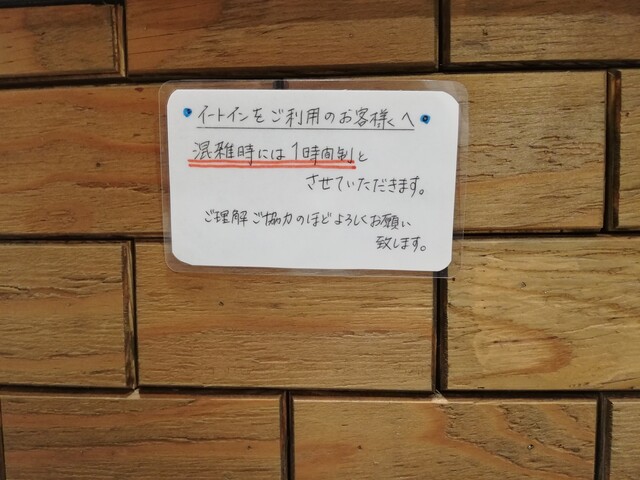 イートインをご利用のお客様へ
混雑時には1時間制と
させていただきます。
ご理解ご協力のほどよろしくお願い
致します。